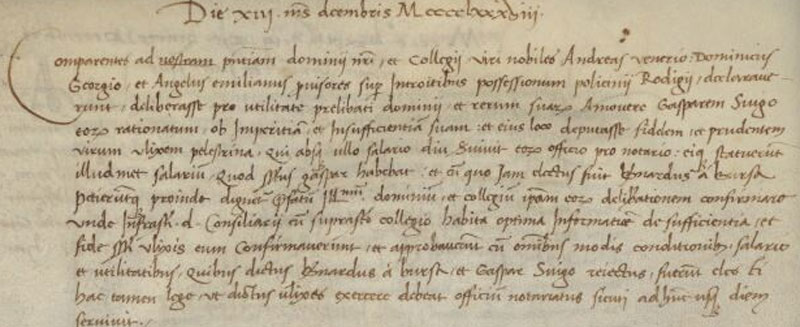 Die XVII. ms decembris MCCCCLXXXVIII.
Comparentes ad nostram pntiam dominii nri, et Collegii viri nobiles Andreas Venerio: Dominicus
Georgio, et Angelus emilianus puisores sup Introitibus possessionum policinii Rodigii, declarave-
runt, deliberasse pro utilitate prelibati dominii, et rerum suarz Amovere Gasparem Suigo
eorz rationatum, ob Imperitiam, et Insufficientiam suam: et eius loco deputasse fidelem, et prudentem
virum Ulixem pelestrina, qui absq ullo salario diu servivit eorz officio pro notario: eiq statuerunt
illudmet salarium, quod gaspar habebat, et cu quo Jam electus fuit Bnardus a bursa
Petierutq proinde dignet Illmum dominiu, et collegiu ipam eorz delibationem confirmare
unde Infrascti. d. Consiliarii cu suprascto collegio habita optima Informatioe de sufficientia, et
fide Ulixis eum Confirmaverunt, et approbaverunt cu omibus modis conditionib, salario
et utilitatibus, quibus dictus Bnardus a bursa, et Gaspar Suigo reiectus, fuerut electi
hac tamen lege, ut dictus Ulixes exercere debeat officiu notariatus sicuti ad huc usq diem
servivit.